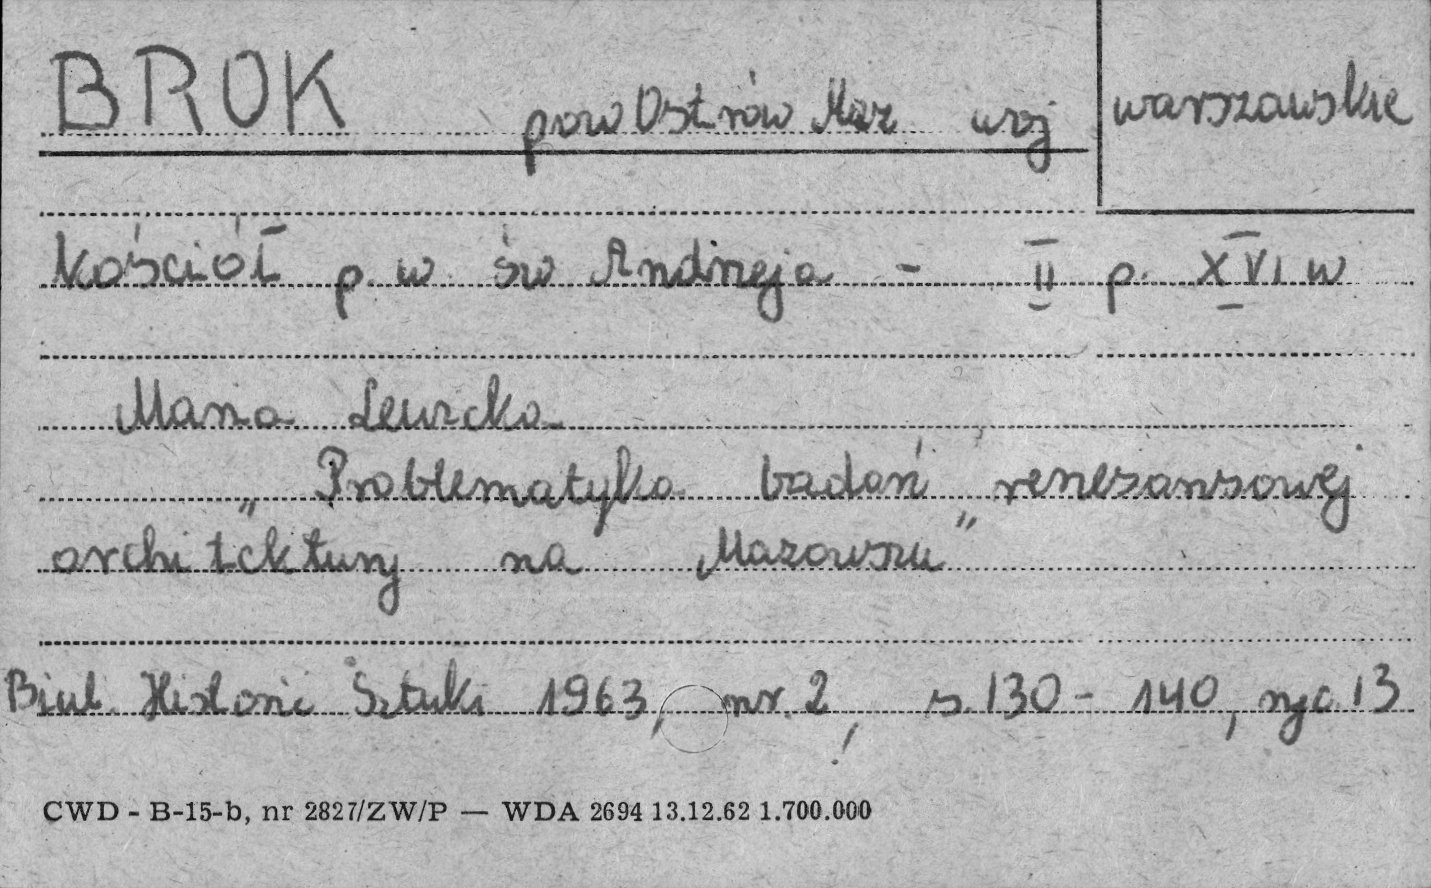 BROK pow Ostrów Maz woj warszawskie
Kościół p.w. św Andrzeja - II p. XVI w
Maria Lewicka
„Problematyka badań renesansowej
architektury na Mazowszu"
Biul. Historii Sztuki 1963, nr. 2, s. 130 - 140, ryc. 13
CWD - B-15-b, nr 2827/ZW/P — WDA 2694 13.12.62 1.700.000